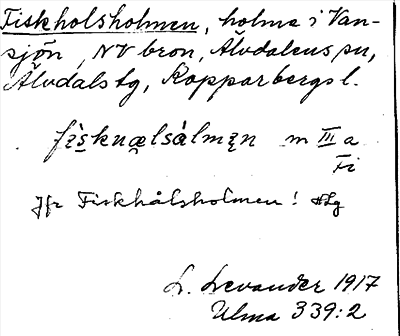 Fiskholsholmen, holme i Van-
sjön, NV bron, Älvdalens sn,
Älvdals tg, Kopparbergs l.
fìsknælsàlmęn m III a
Fi
Jfr Fiskhålsholmen!
L. Levander 1917
Ulma 339:2